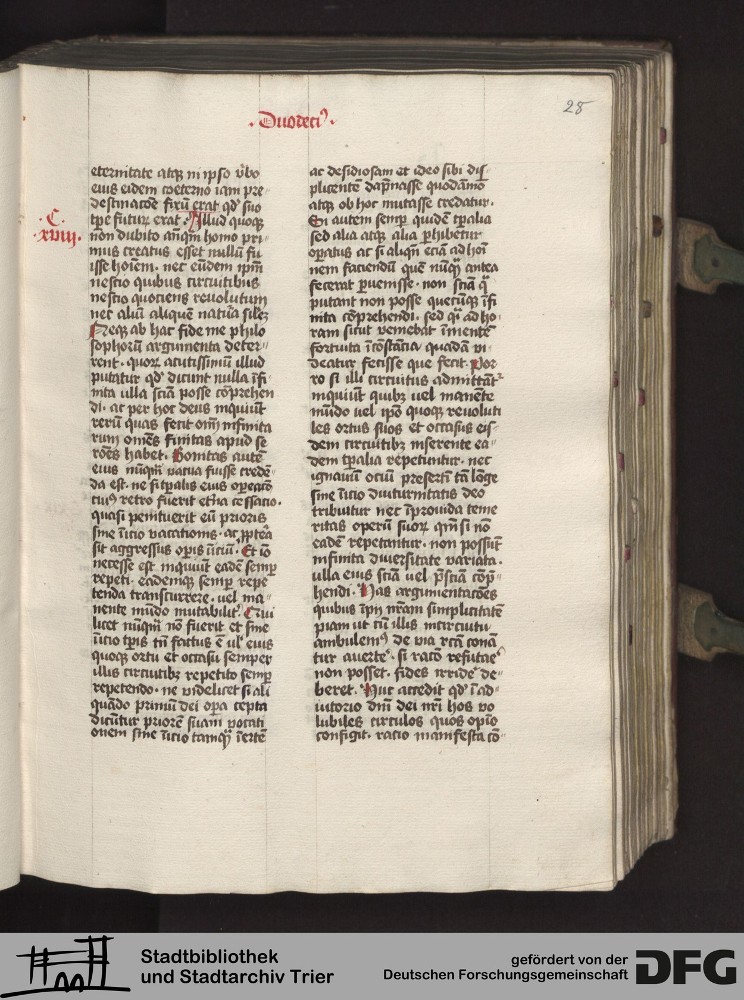 28
·Duodeci⁹·
·C·
·xviij·
eternitate atqꝫ in ipso v̓bo
eius eidem coeterno iam pre
destinacōe fixū erat qd̓ suo
tꝑe futuꝝ erat · Illud quoqꝫ
non dubito anq̄m homo pri
mus creatus esset nullū fu
isse hoīem · nec eūdem ip̄m
nescio quibus circuitibus
nescio quociens reuolutum
nec aliū aliquē natura silēꝫ
Neqꝫ ab hac fide me philo
sophorū argumenta deter
rent · quoꝝ acutissimū illud
putatur qd̓ dicunt nulla īfi
nita vlla sciā posse cōprehen
di · ac per hoc deus inquiūt
rerū quas fecit om̄i infinita
rum omēs finitas apud se
rōēs habet · Bonitas autē
eius nūqm̄ vacua fuisse credē
da est · ne si tꝑalis eius oꝑacō
cui⁹ retro fuerit et̓na cessacio ·
quasi penituerit eū prioris
sine īicio vacationis · ac ꝓpt̓ea
sit aggressus oꝑis īiciū · Et iō
necesse est inquiūt eadē semꝑ
repeti · eademqꝫ semꝑ repe
tenda transcurrere · vel ma
nente mūdo mutabilit̓ · Qui
licet nūqm̄ nō fuerit et sine
īicio tꝑis tn̄ factus ē ul̓ eius
quoqꝫ ortu et occasu semper
illis circuitibꝫ repetito semꝑ
repetendo · ne videlicet si ali
quādo primū dei oꝑa cepta
dicūtur priorē suam vocati
onem sine īicio tamqꝫ īertē
ac desidiosam et ideo sibi dis
plicentē dāpnasse quodāmō
atqꝫ ob hoc mutasse credatur ·
Si autem semꝑ quidē tꝑalia
sed alia atqꝫ alia ꝑhibetur
oꝑatus ac si aliqn̄ eciā ad hōi
nem faciendū quē nūqꝫ antea
fecerat ꝑuenisse · non sciā qꝫ
putant non posse quecūqꝫ īfi
nita cōprehendi · sed qꝫ ad ho
ram sicut veniebat ī mentē
fortuita īcōstācia quadā vi
deatur fecisse que fecit · Por
ro si illi circuitus admittāt̓
inquiūt quibꝫ vel manēte
mūdo uel ipō quoqꝫ reuoluti
les ortus suos et occasus eis
dem circuitibꝫ inserente ea
dem tꝑalia repetuntur · nec
ignauū ociū presertī tā lōge
sine īicio diuturnitatis deo
tribuitur nec īprouida teme
ritas operū suoꝝ qm̄ si nō
eadē repetantur · non possūt
infinita diuersitate variata ·
vlla eius sciā vel p̄sciā cōp̄
hendi · Has argumentacōēs
quibus īpij nr̄am simplicitatē
piam ut cū illis incircuitu
ambulem⁹ de via rc̄ā conā
tur auerte̓ · si racō refutae̓
non posset · fides irride̓ de
beret · Huc accedit qd̓ ī ad
iutorio dn̄i dei nr̄i hos vo
lubiles circulos quos opīo
configit · ratio manifesta cō
Stadtbibliothek
und Stadtarchiv Trier
gefördert von der
Deutschen Forschungsgemeinschaft
DFG